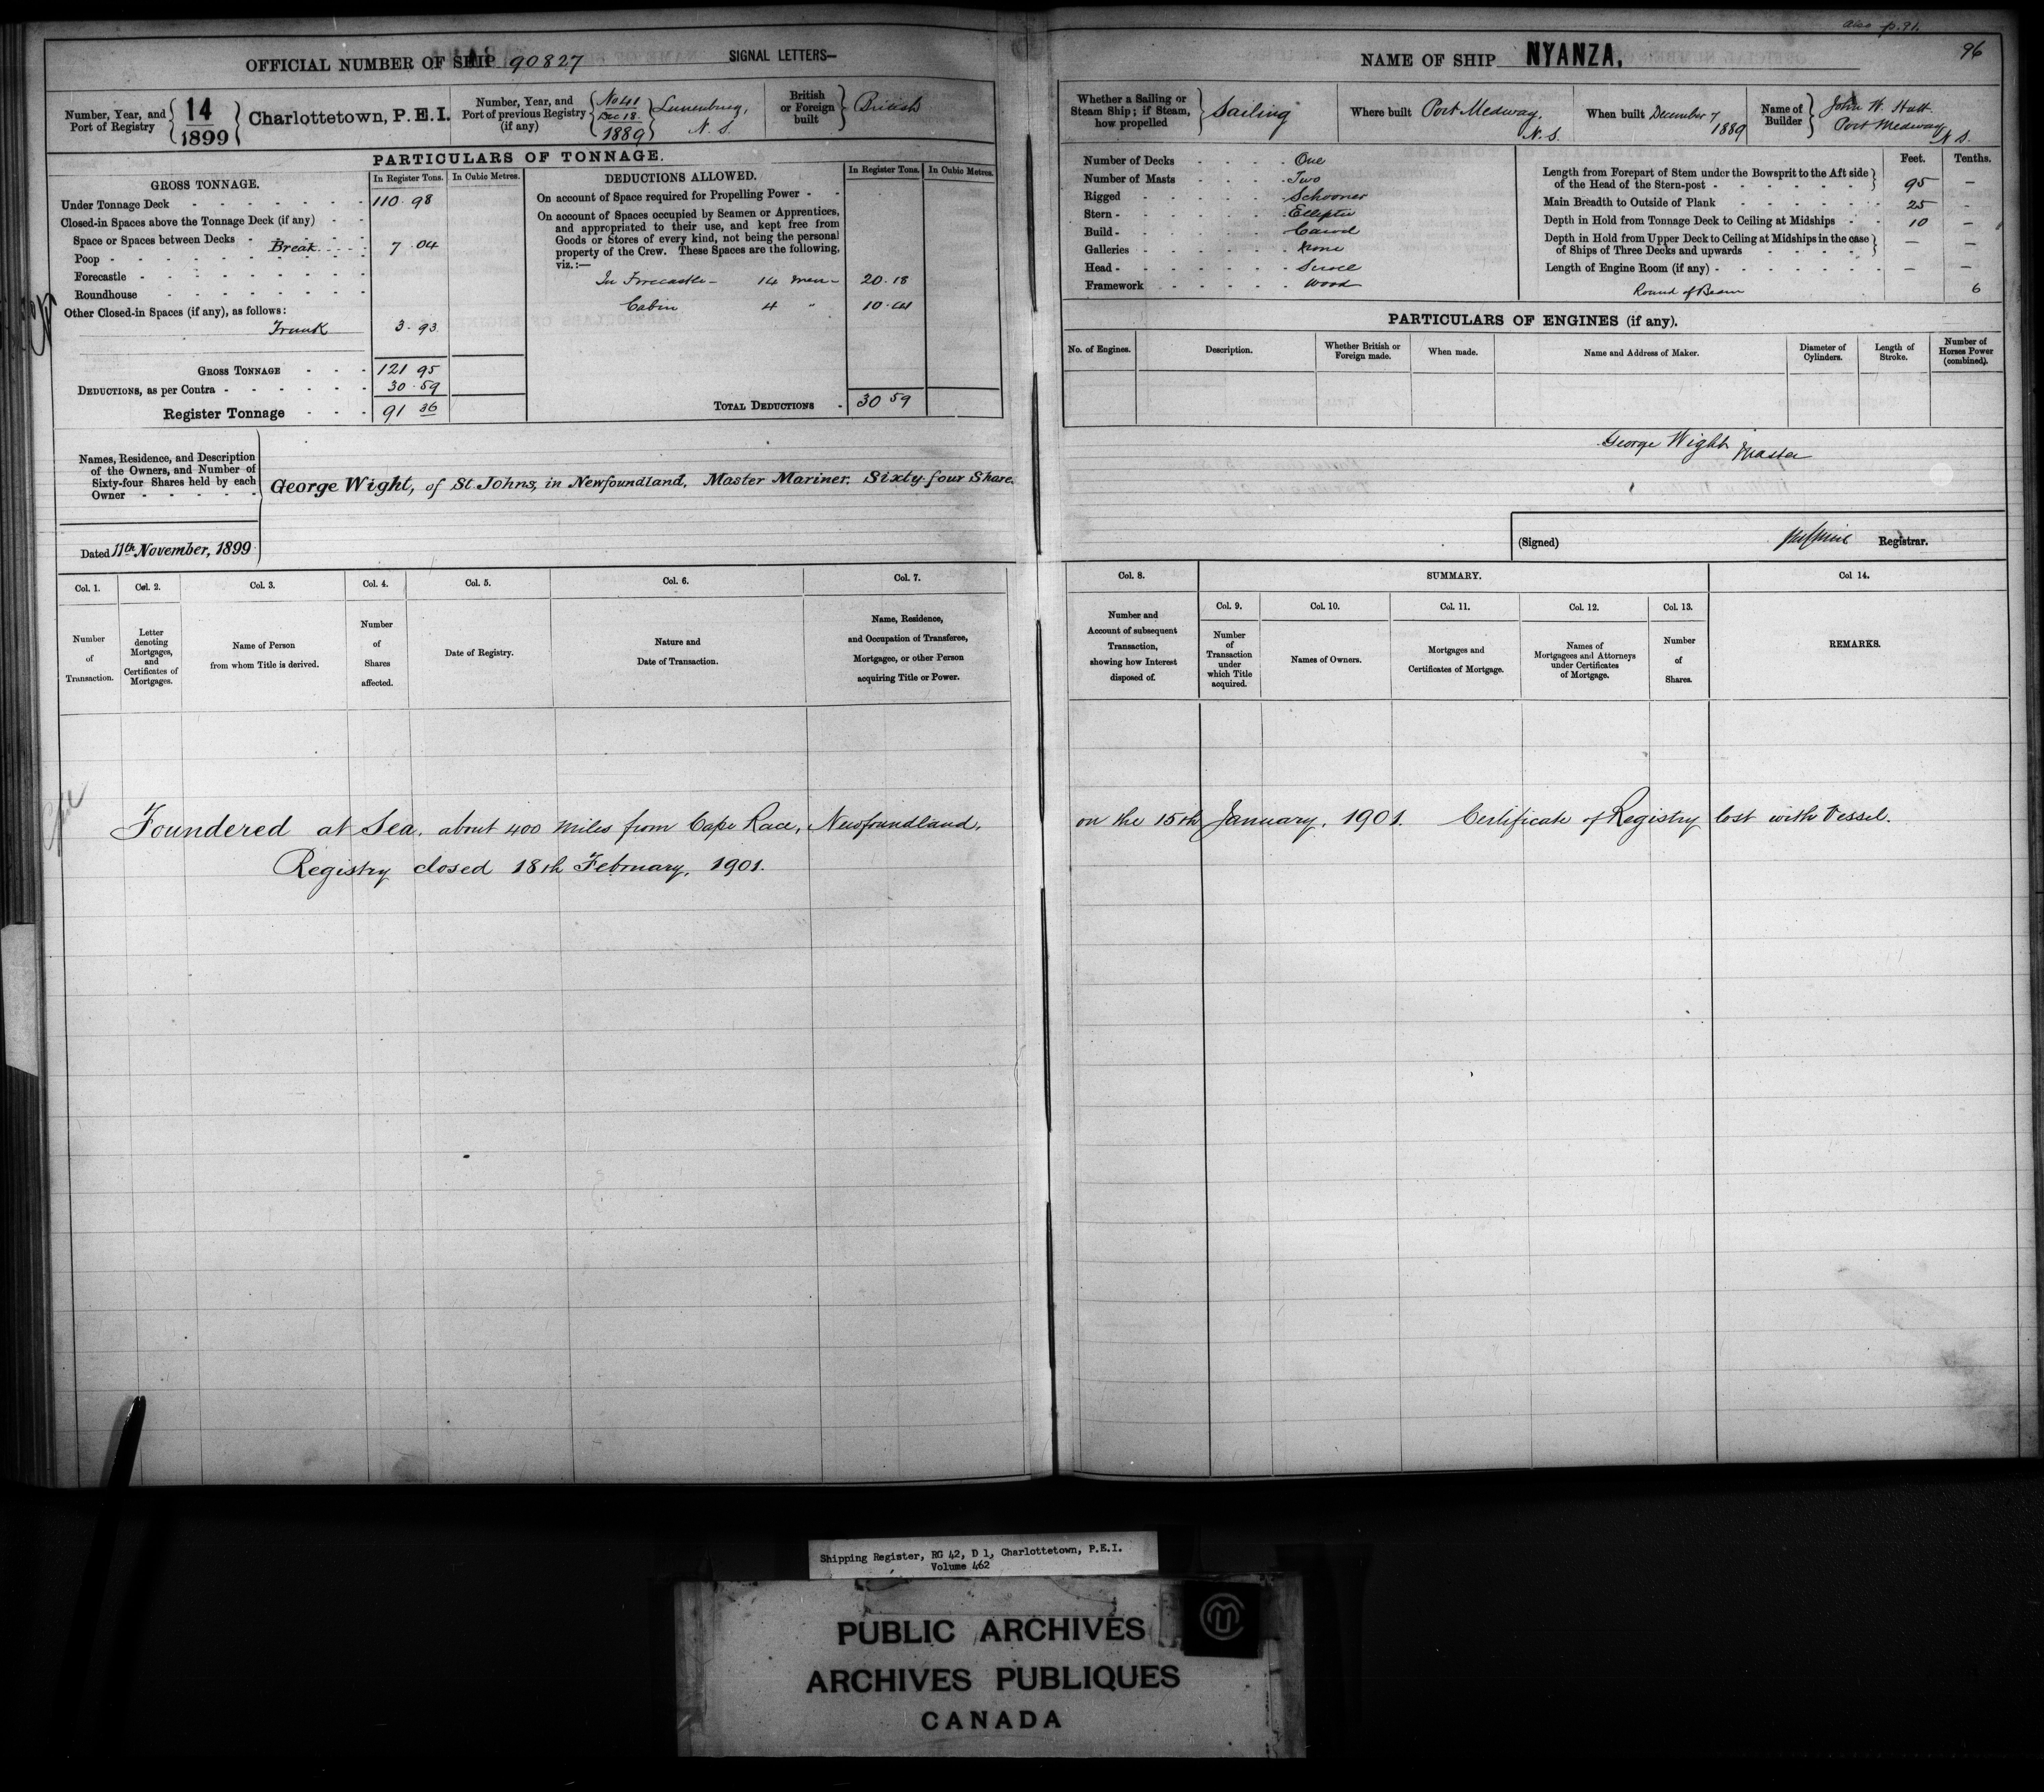 also p. 91.
96
OFFICIAL NUMBER OF SHIP 90827
SIGNAL LETTERS—
Number, Year, and Port of Registry { 14 / 1899 } Charlottetown, P.E.I.
Number, Year, and Port of previous Registry (if any) { No 41 Dec 18. 1889 } Lunenburg, N.S.
British or Foreign built } British
PARTICULARS OF TONNAGE.
GROSS TONNAGE. In Register Tons. In Cubic Metres.
Under Tonnage Deck 110.98
Closed-in Spaces above the Tonnage Deck (if any)
Space or Spaces between Decks
Poop Break 7.04
Forecastle
Roundhouse
Other Closed-in Spaces (if any), as follows:
Trunk 3.93
GROSS TONNAGE 121 95
DEDUCTIONS, as per Contra 30.59
Register Tonnage 91 36
DEDUCTIONS ALLOWED. In Register Tons. In Cubic Metres.
On account of Space required for Propelling Power
On account of Spaces occupied by Seamen or Apprentices,
and appropriated to their use, and kept free from
Goods or Stores of every kind, not being the personal
property of the Crew. These Spaces are the following,
viz.:—
In Forecastle — 14 men — 20.18
Cabin 4 " 10.41
TOTAL DEDUCTIONS 30 59
Names, Residence, and Description
of the Owners, and Number of
Sixty-four Shares held by each
Owner
George Wight, of St. Johns, in Newfoundland, Master Mariner. Sixty-four Share.
Dated 11th November, 1899
Col. 1. Col. 2. Col. 3. Col. 4. Col. 5. Col. 6. Col. 7.
Number of Transaction.
Letter denoting Mortgages, and Certificates of Mortgages.
Name of Person from whom Title is derived.
Number of Shares affected.
Date of Registry.
Nature and Date of Transaction.
Name, Residence, and Occupation of Transferee, Mortgagee, or other Person acquiring Title or Power.
NAME OF SHIP NYANZA.
Whether a Sailing or Steam Ship; if Steam, how propelled } Sailing
Where built Port Medway, N.S.
When built December 7 1889
Name of Builder } John W. Hatt Port Medway N.S.
Number of Decks One
Number of Masts Two
Rigged Schooner
Stern Elliptic
Build Carvel
Galleries None
Head Scroll
Framework Wood
Feet. Tenths.
Length from Forepart of Stem under the Bowsprit to the Aft side
of the Head of the Stern-post 95 —
Main Breadth to Outside of Plank 25 -
Depth in Hold from Tonnage Deck to Ceiling at Midships 10 —
Depth in Hold from Upper Deck to Ceiling at Midships in the case
of Ships of Three Decks and upwards — —
Length of Engine Room (if any) — —
Round of Beam 6
PARTICULARS OF ENGINES (if any).
No. of Engines. Description. Whether British or Foreign made. When made. Name and Address of Maker. Diameter of Cylinders. Length of Stroke. Number of Horses Power (combined).
George Wight Master
(Signed) Registrar.
Col. 8. SUMMARY. Col 14.
Col. 9. Col. 10. Col. 11. Col. 12. Col. 13.
Number and Account of subsequent Transaction, showing how Interest disposed of.
Number of Transaction under which Title acquired.
Names of Owners.
Mortgages and Certificates of Mortgage.
Names of Mortgagees and Attorneys under Certificates of Mortgage.
Number of Shares.
REMARKS.
Foundered at Sea, about 400 Miles from Cape Race, Newfoundland, on the 15th January, 1901. Certificate of Registry lost with Vessel.
Registry closed 18th February, 1901.
Shipping Register, RG 42, D 1, Charlottetown, P.E.I.
Volume 462
PUBLIC ARCHIVES
ARCHIVES PUBLIQUES
CANADA